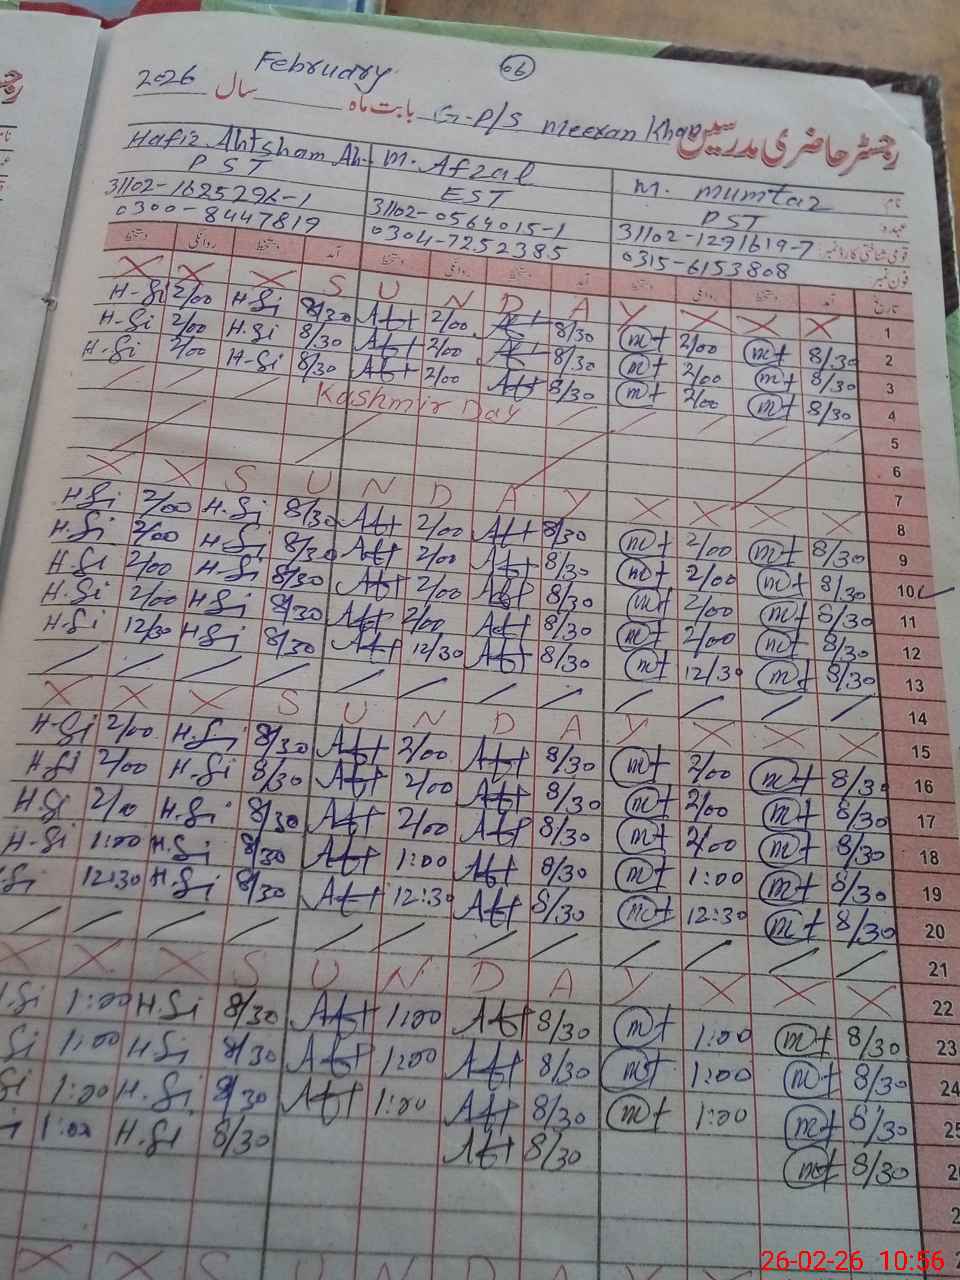 February 06
2026 سال بابت ماه G-P/S Meeran Khan رجسٹر حاضری مدرسین
Hafiz Ahtsham Ah. M. Afzal M. Mumtaz نام
PST EST PST عہدہ
31102-1625296-1 31102-0564015-1 31102-1291619-7 قومی شناختی کارڈ نمبر
0300-8447819 0304-7252385 0315-6153808 فون نمبر
دستخط روانگی دستخط آمد دستخط روانگی دستخط آمد تاریخ
X X X S U N D A Y X X X 1
H-Si 2/00 H-Si 8/30 Aft 2/00 Aft 8/30 mt 2/00 mt 8/30 2
H-Si 2/00 H-Si 8/30 Aft 2/00 Aft 8/30 mt 2/00 mt 8/30 3
H-Si 2/00 H-Si 8/30 Aft 2/00 Aft 8/30 mt 2/00 mt 8/30 4
Kashmir Day 5
6
7
X X S U N D A Y X X X X 8
H-Si 2/00 H-Si 8/30 Aft 2/00 Aft 8/30 mt 2/00 mt 8/30 9
H-Si 2/00 H-Si 8/30 Aft 2/00 Aft 8/30 mt 2/00 mt 8/30 10
H-Si 2/00 H-Si 8/30 Aft 2/00 Aft 8/30 mt 2/00 mt 8/30 11
H-Si 2/00 H-Si 8/30 Aft 2/00 Aft 8/30 mt 2/00 mt 8/30 12
H-Si 12/30 H-Si 8/30 Aft 12/30 Aft 8/30 mt 12/30 mt 8/30 13
14
X X X S U N D A Y X X X 15
H-Si 2/00 H-Si 8/30 Aft 2/00 Aft 8/30 mt 2/00 mt 8/30 16
H-Si 2/00 H-Si 8/30 Aft 2/00 Aft 8/30 mt 2/00 mt 8/30 17
H-Si 2/00 H-Si 8/30 Aft 2/00 Aft 8/30 mt 2/00 mt 8/30 18
H-Si 1:00 H-Si 8/30 Aft 1:00 Aft 8/30 mt 1:00 mt 8/30 19
Si 12:30 H-Si 8/30 Aft 12:30 Aft 8/30 mt 12:30 mt 8/30 20
21
X X X S U N D A Y X X X 22
H-Si 1:00 H-Si 8/30 Aft 1:00 Aft 8/30 mt 1:00 mt 8/30 23
Si 1:00 H-Si 8/30 Aft 1:00 Aft 8/30 mt 1:00 mt 8/30 24
Si 1:00 H-Si 8/30 Aft 1:00 Aft 8/30 mt 1:00 mt 8/30 25
1:00 H-Si 8/30 Aft 8/30 mt 8/30 2
2
X X S U N D A Y X
26-02-26 10:56